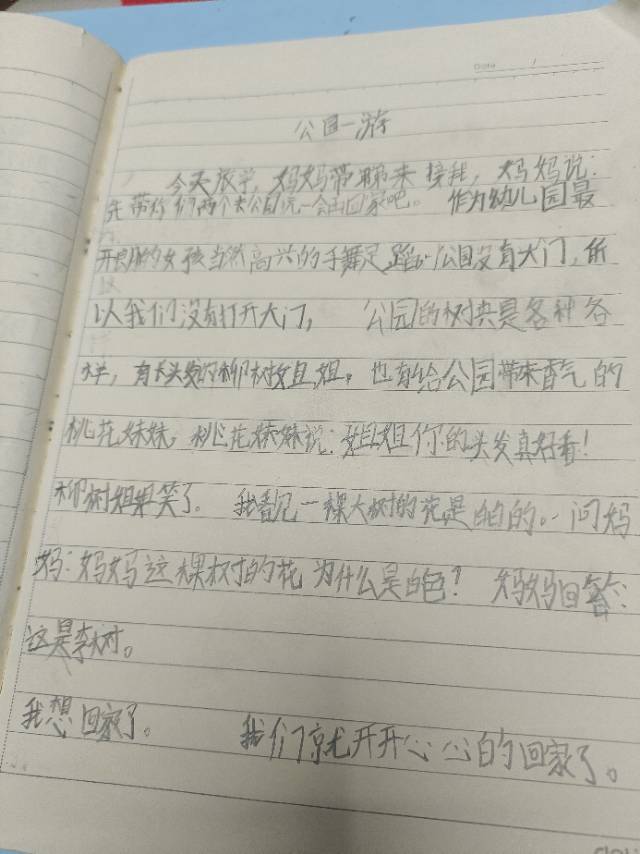 Date /
公园一游
今天放学,妈妈带弟来接我,妈妈说:
先带你们两个去公园玩一会再回家吧。 作为幼儿园最
开朗的女孩当然高兴的手舞足蹈。公园没有大门,所
以我们没有打开大门, 公园的树共是各种各
样,有长头发的柳树姐姐,也有给公园带来香气的
桃花妹妹,桃花妹妹说:姐姐你的头发真好看!
柳树姐姐笑了。 我看见一棵大树的花是白白的。问妈
妈:妈妈这棵树的花为什么是白色? 妈妈回答:
这是李树。
我想回家了。 我们就开开心心的回家了。